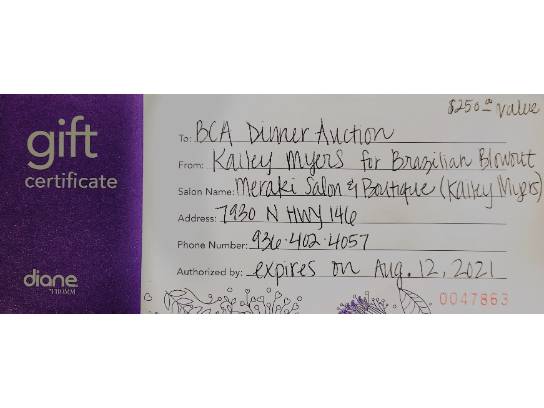 $250.00 value
gift
certificate
To: BCA Dinner Auction
From: Kailey Myers for Brazilian Blowout
Salon Name: Meraki Salon & Boutique (Kailey Myers)
Address: 7930 N HWY 146
Phone Number: 936-402-4057
Authorized by: expires on Aug. 12, 2021
diane
BY FROMM
0047863